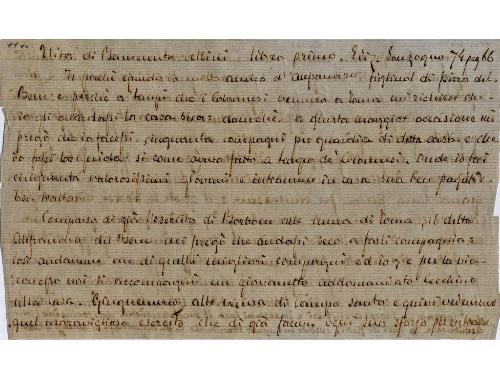 Vita di Benvenuto Cellini libro primo. Ediz. Sonzogno 74 pag 66
Di poi che essendo io molto amico d' Alessandro, figliuol di Piero del
Bene e perchè a' tempi che i Colonnesi vennero a Roma mi richiese che
io gli guardassi la casa sua: a questa maggior occasione mi
pregò che io facessi cinquanta compagni per guardia di detta casa e che
io fossi lor guida, si come avevo fatto a tempo de' Colonnesi. Onde io feci
cinquanta valorosissimi giovani e entrammo in casa sua ben pagati e
ben trattati
Comparso di già l'esercito di Borbone alle mura di Roma, il detto
Alessandro del Bene mi pregò che andassi seco a farli compagnia:
così andammo un di quelli migliori compagni ed io: e per la via
con esso noi si accompagnò un giovanetto addomandato Cecchino
della Casa. Giugnemmo alle mura di Campo Santo e quivi vedemmo
quel maraviglioso esercito, che di già faceva ogni suo sforzo per entrare